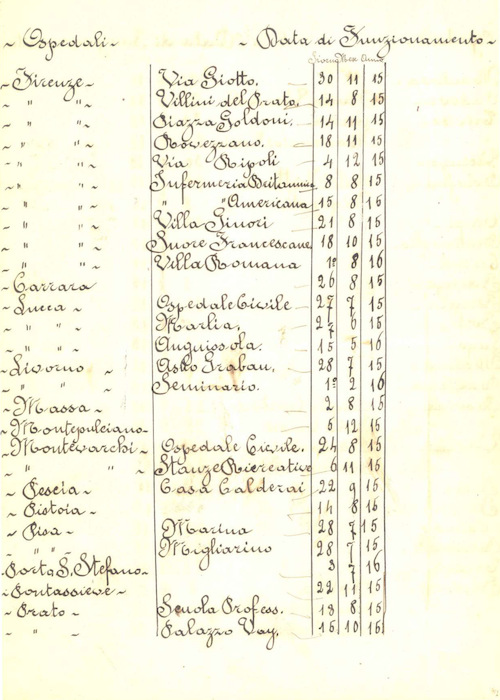 ~ Ospedali ~ ~ Data di Funzionamento ~
Giorno Mese Anno
~ Firenze ~ Via Giotto. 30 11 15
~ " " ~ Villini del Prato. 14 8 15
~ " " ~ Piazza Goldoni. 14 11 15
~ " " ~ Rovezzano. 18 11 15
~ " " ~ Via Ripoli 4 12 15
~ " " ~ Infermeria Britannica 8 8 15
~ " " ~ " Americana 15 8 15
~ " " ~ Villa Ginori 21 8 15
~ " " ~ Suore Francescane 18 10 15
~ " " ~ Villa Romana 1º 8 16
~ Carrara 26 8 15
~ Lucca ~ Ospedale Civile 27 7 15
~ " " ~ Marlia. 27 6 15
~ " " ~ Anguissola. 15 5 16
~ Livorno ~ Asilo Traban. 28 7 15
~ " " ~ Seminario. 1º 2 16
~ Massa ~ 2 8 15
~ Montepulciano ~ 5 12 15
~ Montevarchi ~ Ospedale Civile. 24 8 15
~ " " ~ Stanze Ricreative 6 11 15
~ Pescia ~ Casa Calderai 22 9 15
~ Pistoia ~ 14 8 15
~ Pisa ~ Marina 28 7 15
~ " " ~ Migliarino 28 7 15
~ Porto S. Stefano ~ 3 7 16
~ Pontassieve ~ 22 11 15
~ Prato ~ Scuola Profess. 13 8 15
~ " ~ Palazzo Vay. 15 10 15